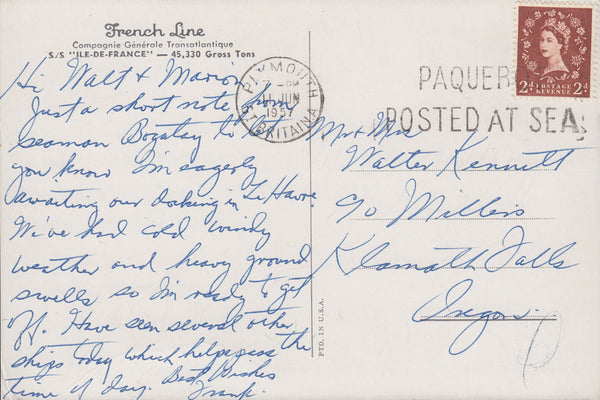 French Line
Compagnie Générale Transatlantique
S/S "ILE-DE-FRANCE" — 45,330 Gross Tons
Hi Walt & Marion
Just a short note from
seaman Bozatay to let
you know I'm eagerly
awaiting our docking in Le Havre
We've had cold windy
weather and heavy ground
swells so I'm ready to get
off. Have seen several other
ships today which helps pass the
time of day. Best Wishes
Frank.
PLYMOUTH
PM
11 JUN
1957
PAQUE
POSTED AT SEA
2d POSTAGE REVENUE 2d
Mr & Mrs
Walter Kennett
c/o Millers
Klamath Falls
Oregon.
PTD. IN U.S.A.